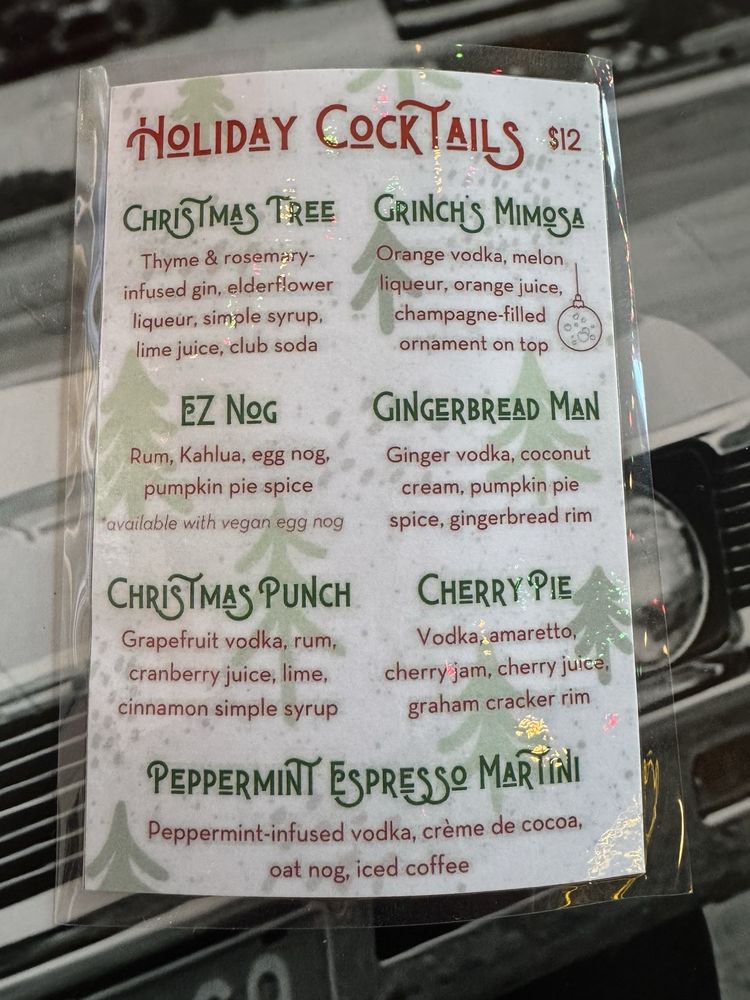 Holiday Cocktails $12
Christmas Tree
Thyme & rosemary-
infused gin, elderflower
liqueur, simple syrup,
lime juice, club soda
Grinch's Mimosa
Orange vodka, melon
liqueur, orange juice,
champagne-filled
ornament on top
EZ Nog
Rum, Kahlua, egg nog,
pumpkin pie spice
*available with vegan egg nog
Gingerbread Man
Ginger vodka, coconut
cream, pumpkin pie
spice, gingerbread rim
Christmas Punch
Grapefruit vodka, rum,
cranberry juice, lime,
cinnamon simple syrup
Cherry Pie
Vodka, amaretto,
cherry jam, cherry juice,
graham cracker rim
Peppermint Espresso Martini
Peppermint-infused vodka, crème de cocoa,
oat nog, iced coffee